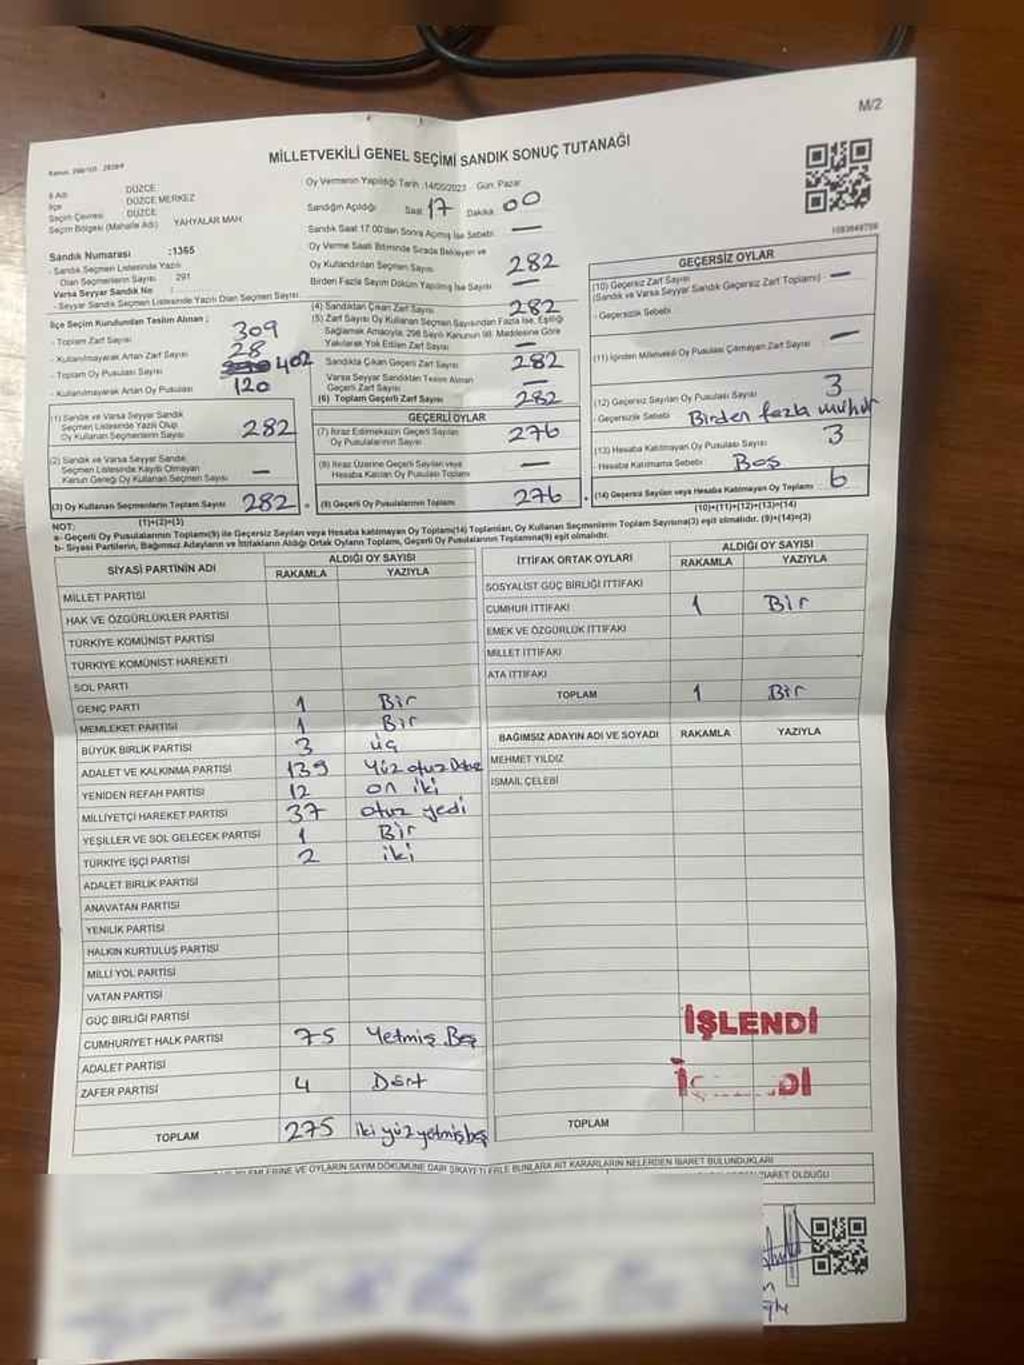 M/2
MİLLETVEKİLİ GENEL SEÇİMİ SANDIK SONUÇ TUTANAĞI
İl Adı DÜZCE
İlçe DÜZCE MERKEZ
Seçim Çevresi DÜZCE
Seçim Bölgesi (Mahalle Adı) YAHYALAR MAH
Sandık Numarası :1365
- Sandık Seçmen Listesinde Yazılı
Olan Seçmenlerin Sayısı : 291
Varsa Seyyar Sandık No :
- Seyyar Sandık Seçmen Listesinde Yazılı Olan Seçmen Sayısı
Oy Vermenin Yapıldığı Tarih :14/05/2023 Gün: Pazar
Sandığın Açıldığı Saat 17 Dakika 00
Sandık Saat 17.00'den Sonra Açılmış İse Sebebi: —
Oy Verme Saati Bitiminde Sırada Bekleyen ve
Oy Kullandırılan Seçmen Sayısı 282
Birden Fazla Sayım Döküm Yapılmış İse Sayısı —
İlçe Seçim Kurulundan Teslim Alınan :
- Toplam Zarf Sayısı 309
- Kullanılmayarak Artan Zarf Sayısı 28
- Toplam Oy Pusulası Sayısı 402
- Kullanılmayarak Artan Oy Pusulası 120
(1) Sandık ve Varsa Seyyar Sandık
Seçmen Listesinde Yazılı Olup
Oy Kullanan Seçmenlerin Sayısı 282
(2) Sandık ve Varsa Seyyar Sandık
Seçmen Listesinde Kayıtlı Olmayan
Kanun Gereği Oy Kullanan Seçmenlerin Sayısı —
(3) Oy Kullanan Seçmenlerin Toplam Sayısı 282
(1)+(2)=(3)
(4) Sandıktan Çıkan Zarf Sayısı 282
(5) Zarf Sayısı Oy Kullanan Seçmen Sayısından Fazla İse, Eşitliği
Sağlamak Amacıyla, 298 Sayılı Kanunun 98. Maddesine Göre
Yakılarak Yok Edilen Zarf Sayısı —
Sandıkta Çıkan Geçerli Zarf Sayısı 282
Varsa Seyyar Sandıktan Teslim Alınan
Geçerli Zarf Sayısı —
(6) Toplam Geçerli Zarf Sayısı 282
GEÇERLİ OYLAR
(7) İtiraz Edilmeksizin Geçerli Sayılan
Oy Pusulalarının Sayısı 276
(8) İtiraz Üzerine Geçerli Sayılan veya
Hesaba Katılan Oy Pusulası Toplamı —
(9) Geçerli Oy Pusulalarının Toplamı 276
GEÇERSİZ OYLAR
(10) Geçersiz Zarf Sayısı
(Sandık ve Varsa Seyyar Sandık Geçersiz Zarf Toplamı) —
- Geçersizlik Sebebi
(11) İçinden Milletvekili Oy Pusulası Çıkmayan Zarf Sayısı —
(12) Geçersiz Sayılan Oy Pusulası Sayısı 3
- Geçersizlik Sebebi Birden fazla mühür
(13) Hesaba Katılmayan Oy Pusulası Sayısı 3
Hesaba Katılmama Sebebi Boş
(14) Geçersiz Sayılan veya Hesaba Katılmayan Oy Toplamı 6
(10)+(11)+(12)+(13)=(14)
NOT:
a- Geçerli Oy Pusulalarının Toplamı(9) ile Geçersiz Sayılan veya Hesaba katılmayan Oy Toplamı(14) Toplamları, Oy Kullanan Seçmenlerin Toplam Sayısına(3) eşit olmalıdır. (9)+(14)=(3)
b- Siyasi Partilerin, Bağımsız Adayların ve İttifakların Aldığı Ortak Oyların Toplamı, Geçerli Oy Pusulalarının Toplamına(9) eşit olmalıdır.
SİYASİ PARTİNİN ADI ALDIĞI OY SAYISI
RAKAMLA YAZIYLA
MİLLET PARTİSİ
HAK VE ÖZGÜRLÜKLER PARTİSİ
TÜRKİYE KOMÜNİST PARTİSİ
TÜRKİYE KOMÜNİST HAREKETİ
SOL PARTİ
GENÇ PARTİ 1 Bir
MEMLEKET PARTİSİ 1 Bir
BÜYÜK BİRLİK PARTİSİ 3 üç
ADALET VE KALKINMA PARTİSİ 139 Yüz otuz Dokuz
YENİDEN REFAH PARTİSİ 12 on iki
MİLLİYETÇİ HAREKET PARTİSİ 37 otuz yedi
YEŞİLLER VE SOL GELECEK PARTİSİ 1 Bir
TÜRKİYE İŞÇİ PARTİSİ 2 iki
ADALET BİRLİK PARTİSİ
ANAVATAN PARTİSİ
YENİLİK PARTİSİ
HALKIN KURTULUŞ PARTİSİ
MİLLİ YOL PARTİSİ
VATAN PARTİSİ
GÜÇ BİRLİĞİ PARTİSİ
CUMHURİYET HALK PARTİSİ 75 Yetmiş Beş
ADALET PARTİSİ
ZAFER PARTİSİ 4 Dört
TOPLAM 275 iki yüz yetmiş beş
İTTİFAK ORTAK OYLARI ALDIĞI OY SAYISI
RAKAMLA YAZIYLA
SOSYALİST GÜÇ BİRLİĞİ İTTİFAKI
CUMHUR İTTİFAKI 1 Bir
EMEK VE ÖZGÜRLÜK İTTİFAKI
MİLLET İTTİFAKI
ATA İTTİFAKI
TOPLAM 1 Bir
BAĞIMSIZ ADAYIN ADI VE SOYADI RAKAMLA YAZIYLA
MEHMET YILDIZ
İSMAİL ÇELEBİ
İŞLENDİ
TOPLAM
VE OYLARIN SAYIM DÖKÜMÜNE DAİR ŞİKAYETLERLE BUNLARA AİT KARARLARIN NELERDEN İBARET BULUNDUKLARI
İBARET OLDUĞU